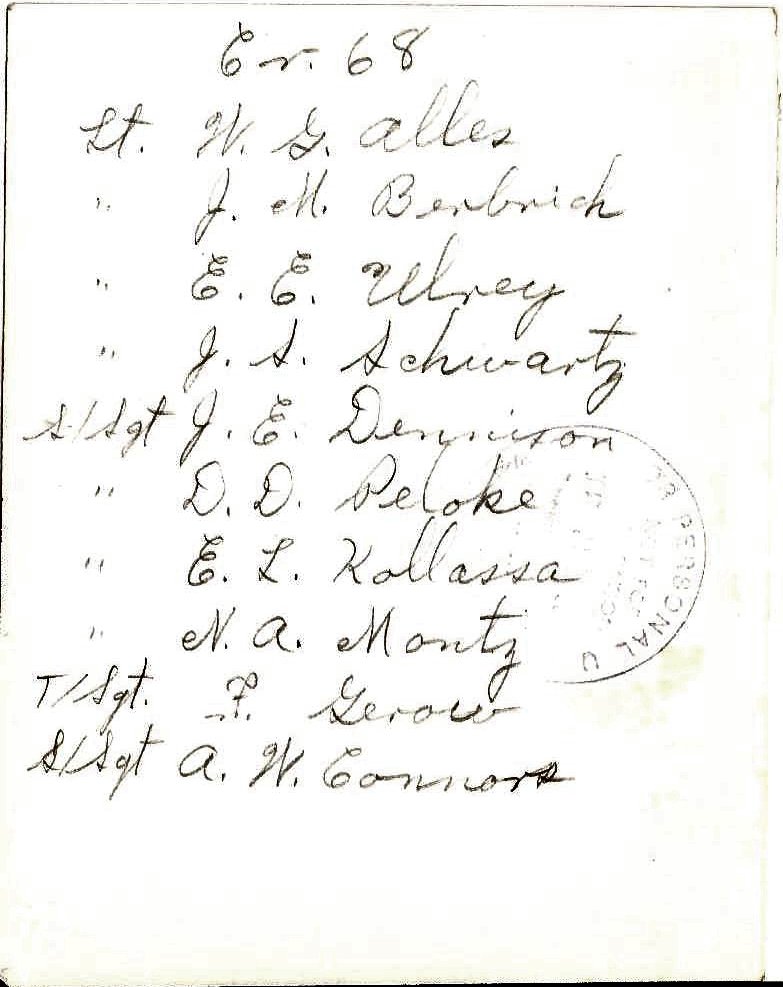 Cr. 68
Lt. W. G. Alles
" J. M. Berbrich
" E. E. Ulrey
" J. S. Schwartz
S/Sgt J. E. Dennison
" D. D. Peloke
" E. L. Kollassa
" N. A. Montz
T/Sgt. F. Gerow
S/Sgt A. W. Connors
PERSONAL U
NOT FOR